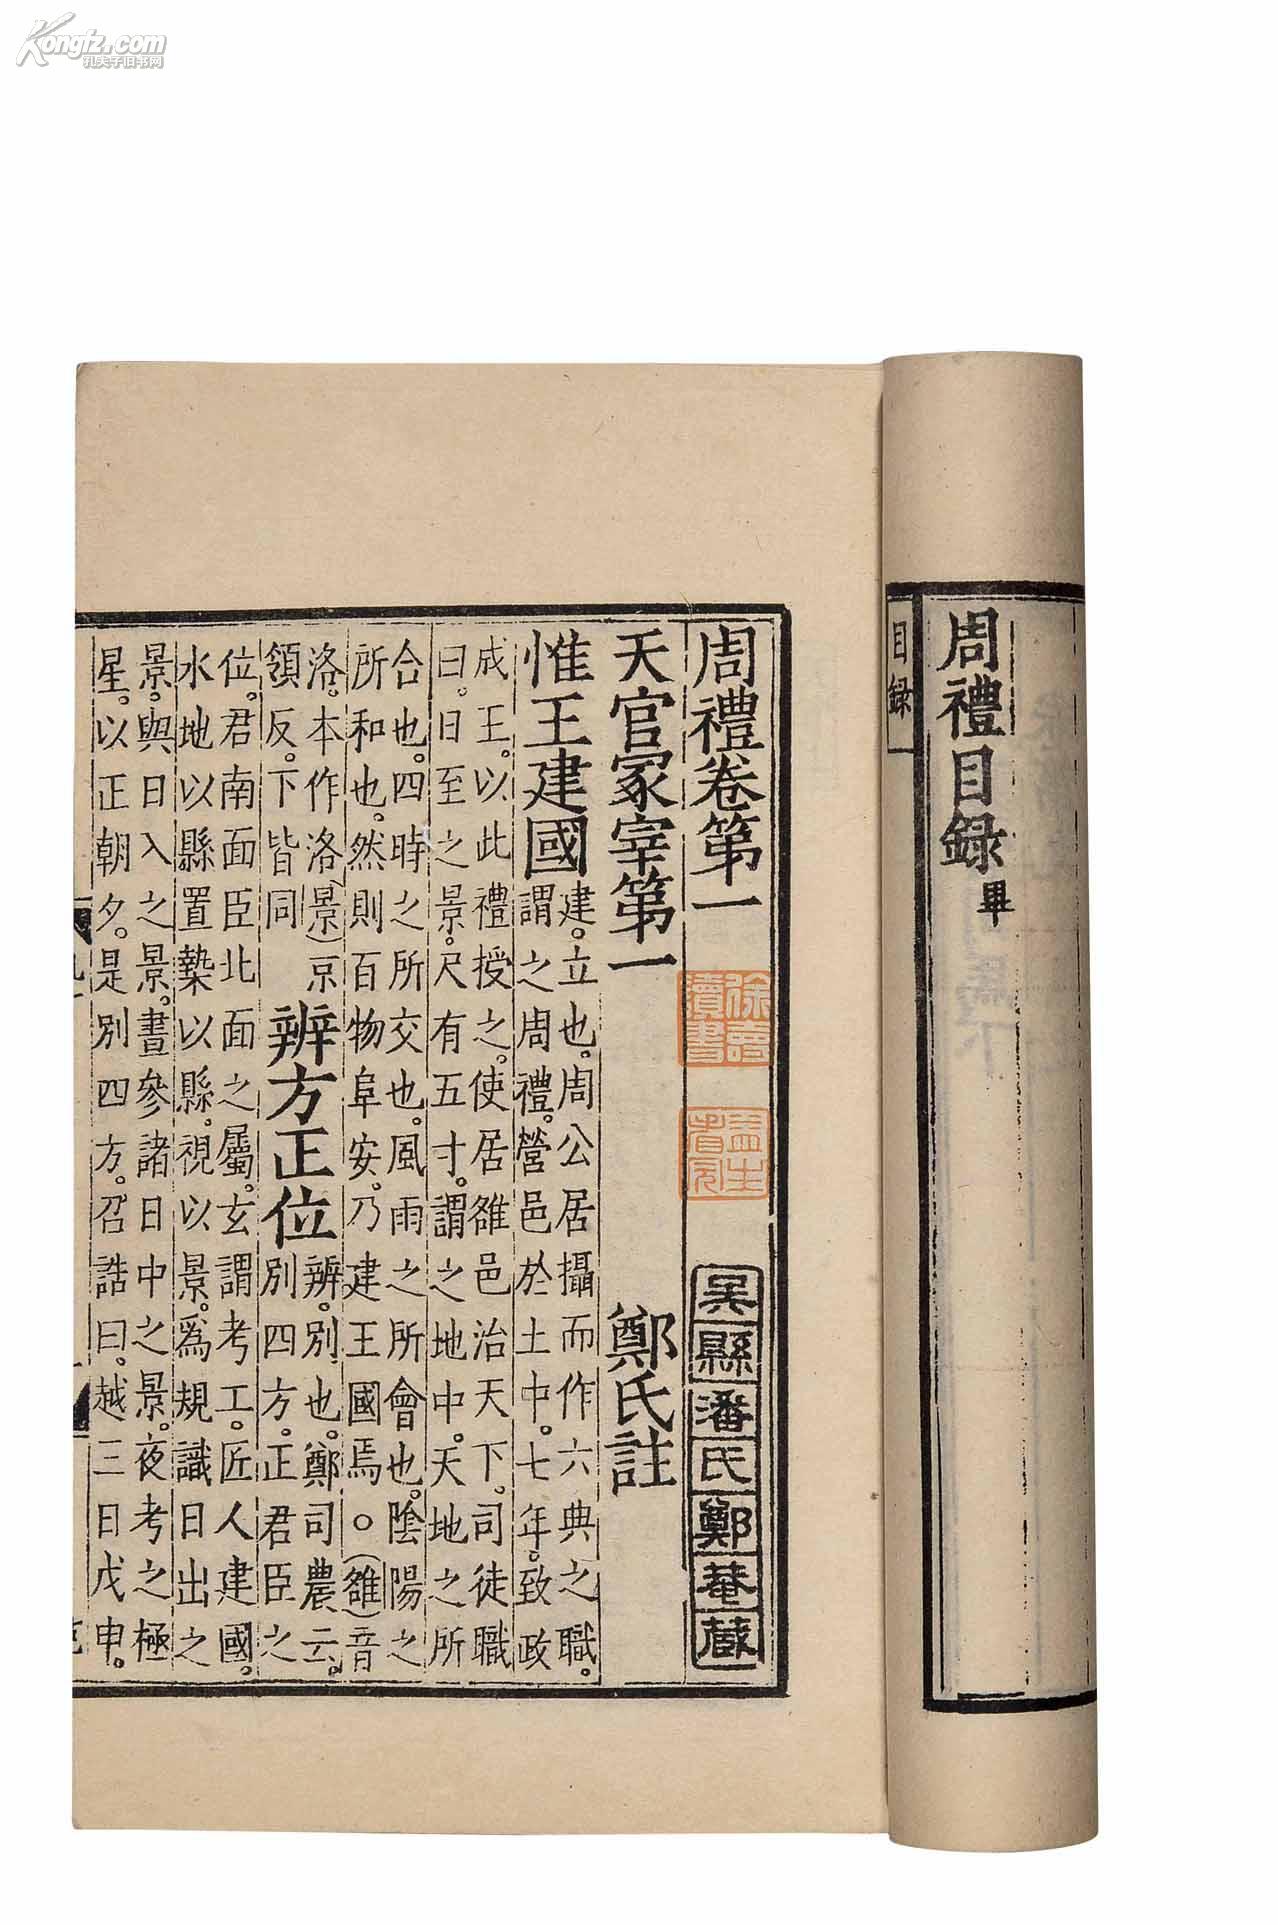 Kongfz.com
孔夫子旧书网
周禮目録畢
目録
周禮卷第一
吳縣潘氏鄭菴藏
徐壽
讀書
益生
天官冢宰第一　鄭氏註
惟王建國
建。立也。周公居攝而作六典之職。
謂之周禮。營邑於土中。七年。致政
成王。以此禮授之。使居雒邑治天下。司徒職
曰。日至之景。尺有五寸。謂之地中。天地之所
合也。四時之所交也。風雨之所會也。陰陽之
所和也。然則百物阜安。乃建王國焉。○(雒)音
洛。本作洛(景)京
領反。下皆同
辨方正位
辨。別也。鄭司農云。
別四方。正君臣之
位。君南面臣北面之屬。玄謂考工。匠人建國。
水地以縣置槷以縣。視以景。爲規識日出之
景。與日入之景。晝參諸日中之景。夜考之極
星。以正朝夕。是別四方。召誥曰。越三日戊申。